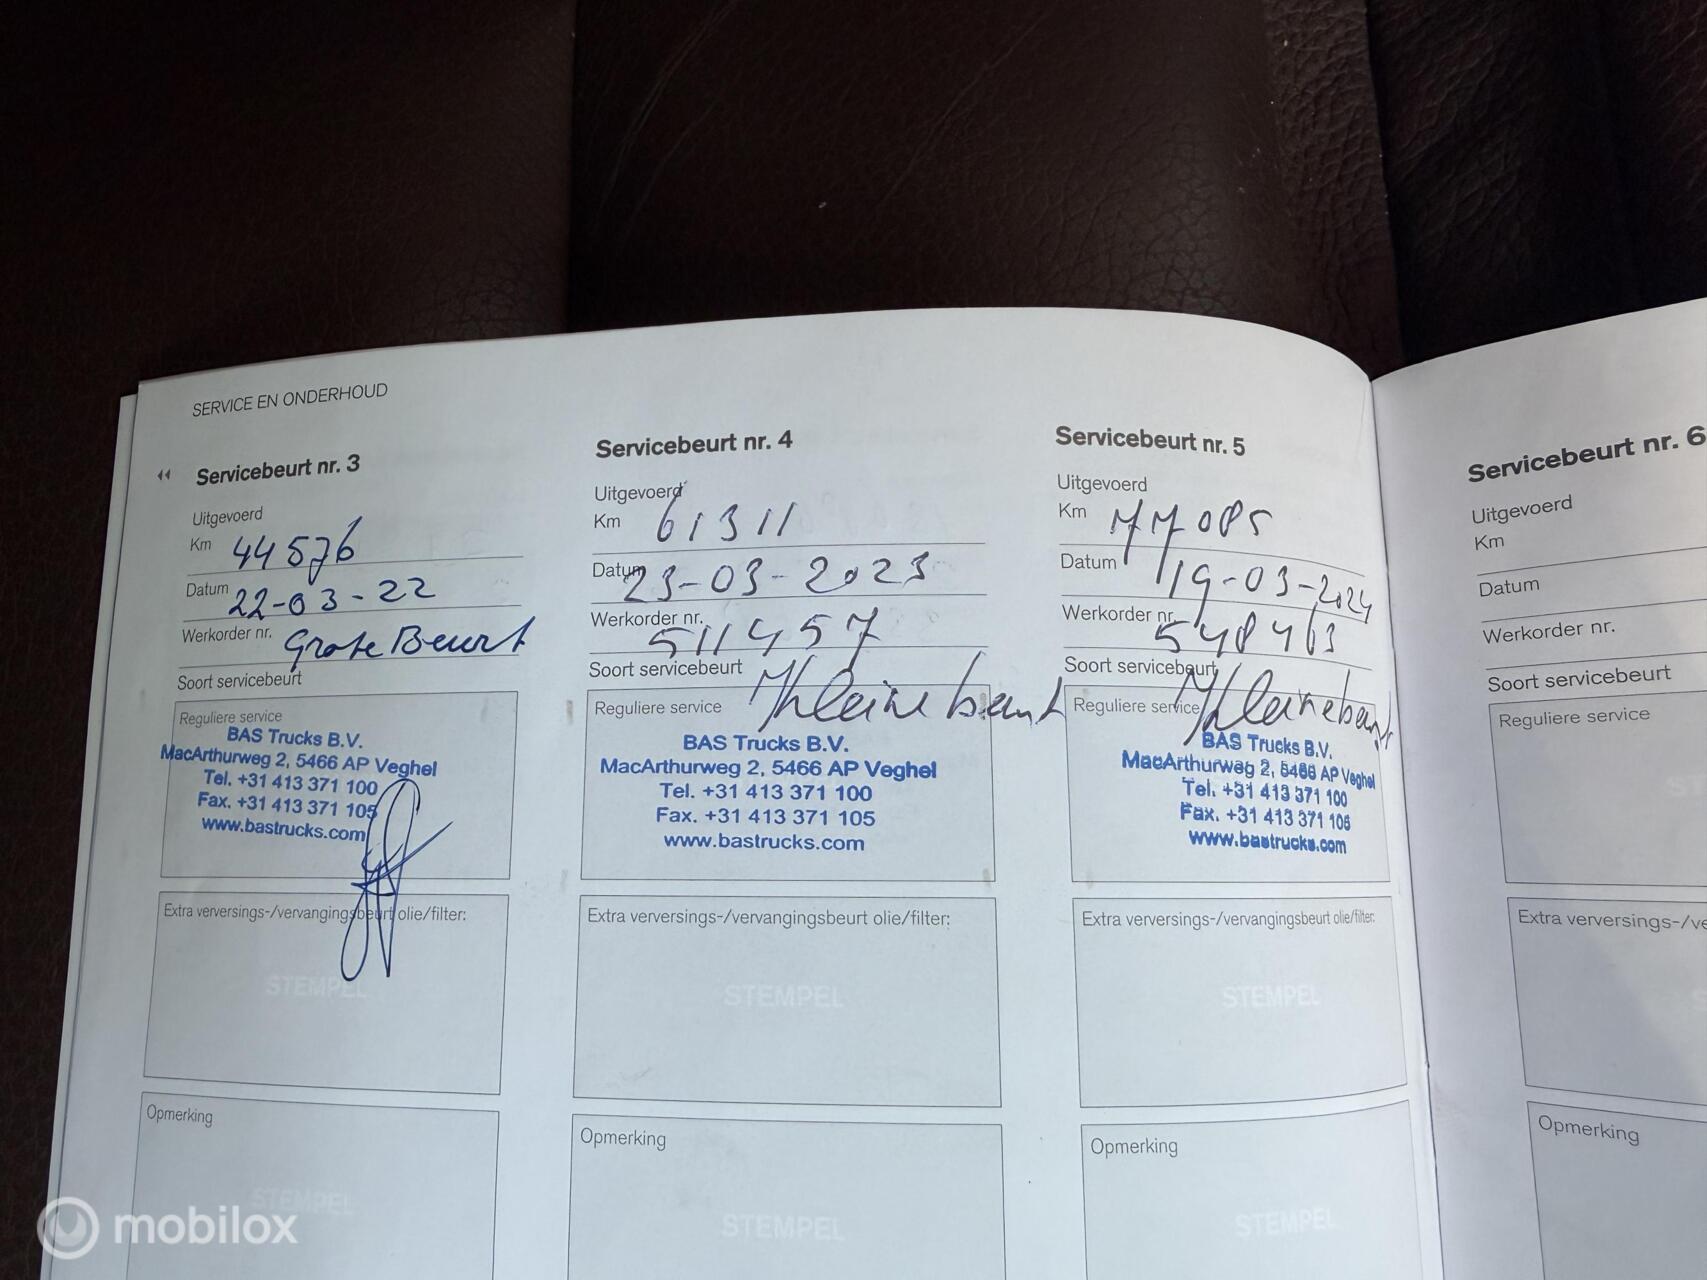 SERVICE EN ONDERHOUD
Servicebeurt nr. 3
Uitgevoerd
Km 44576
Datum 22-03-22
Werkorder nr. Grote Beurt
Soort servicebeurt
Reguliere service
BAS Trucks B.V.
MacArthurweg 2, 5466 AP Veghel
Tel. +31 413 371 100
Fax. +31 413 371 105
www.bastrucks.com
Extra verversings-/vervangingsbeurt olie/filter:
STEMPEL
Opmerking
STEMPEL
Servicebeurt nr. 4
Uitgevoerd
Km 61311
Datum 23-03-2023
Werkorder nr. 511457
Soort servicebeurt Kleine beurt
Reguliere service
BAS Trucks B.V.
MacArthurweg 2, 5466 AP Veghel
Tel. +31 413 371 100
Fax. +31 413 371 105
www.bastrucks.com
Extra verversings-/vervangingsbeurt olie/filter:
STEMPEL
Opmerking
STEMPEL
Servicebeurt nr. 5
Uitgevoerd
Km 77085
Datum 19-03-2024
Werkorder nr. 548463
Soort servicebeurt Kleine beurt
Reguliere service
BAS Trucks B.V.
MacArthurweg 2, 5466 AP Veghel
Tel. +31 413 371 100
Fax. +31 413 371 105
www.bastrucks.com
Extra verversings-/vervangingsbeurt olie/filter:
STEMPEL
Opmerking
STEMPEL
Servicebeurt nr. 6
Uitgevoerd
Km
Datum
Werkorder nr.
Soort servicebeurt
Reguliere service
Extra verversings-/ve
Opmerking
mobilox